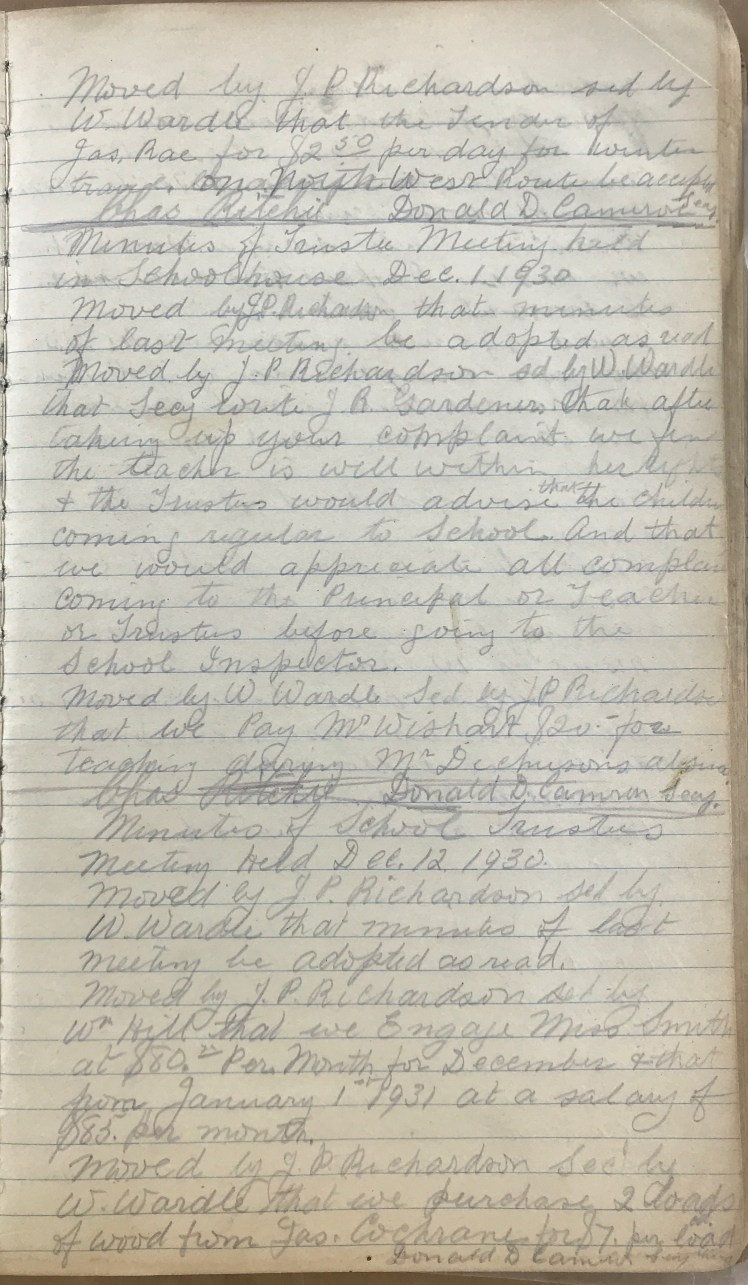 Moved by J. P. Richardson scd by
W. Wardle that the Tender of
Jas. Rae for $2 50 per day for winter
on North West Route be accepted
Chas Ritchie Donald D. Cameron Secy.
Minutes of Trustee Meeting held
in Schoolhouse Dec. 1. 1930
Moved by J.P. Richardson that minutes
of last meeting be adopted as read
Moved by J. P. Richardson sd by W. Wardle
that Secy write J. R. Gardiner that after
taking up your complaint we fin
the teacher is well within her rights
& the Trustees would advise that the childre
coming regular to School. And that
we would appreciate all complai
coming to the Principal or Teacher
or Trustees before going to the
School Inspector.
Moved by W. Wardle Scd by J P Richardso
that we Pay Mr Wishart $20.- for
teaching during Mr absence
Chas Ritchie Donald D. Cameron Secy.
Minutes of School Trustees
Meeting Held Dec. 12 1930.
Moved by J P. Richardson scd by
W. Wardle that minutes of last
meeting be adopted as read.
Moved by J. P. Richardson scd by
Wm Hill that we Engage Miss Smith
at $80. Per. Month for December & that
from January 1st 1931 at a salary of
$85. per month.
Moved by J. P. Richardson Sec by
W. Wardle that we purchase 2 loads
of wood from Jas. Cochrane for $7. per load
Donald D Cameron